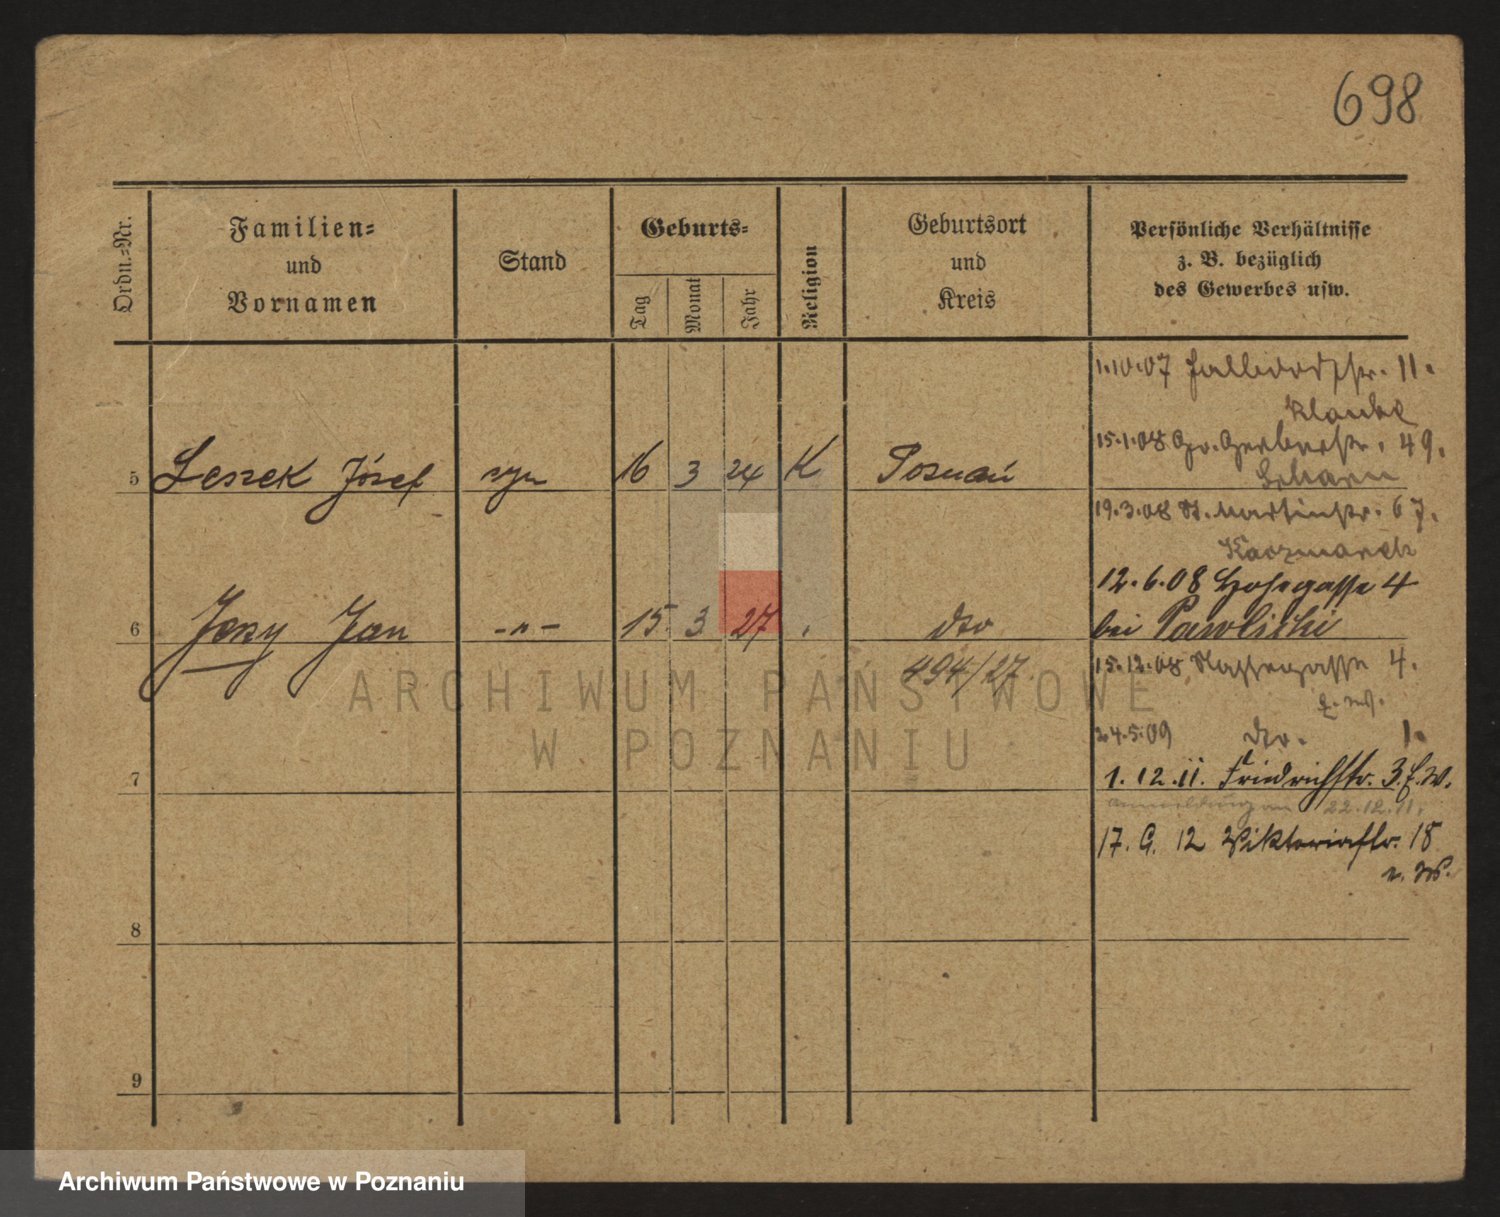 698
Ordn.-Nr.
Familien-
und
Vornamen
Stand
Geburts-
Tag
Monat
Jahr
Religion
Geburtsort
und
Kreis
Persönliche Verhältnisse
z. B. bezüglich
des Gewerbes usw.
1.10.07 11.
15.1.08 Gr. Gerberstr. 49.
5 Leszek Józef syn 16 3 24 K Poznań
19.3.08 St. Martinstr. 67.
Kaczmarek
12.6.08 4
6 Jerzy Jan -„- 15. 3 27 dto
bei Pawlicki
494/27.
15.12.08 4.
24.5.09 dto. 1.
7
1.12.11. Friedrichstr. 3. E.W.
Anmeldung am 22.12.11.
17. 6. 12 Viktoriastr. 18
8
9
ARCHIWUM PAŃSTWOWE
W POZNANIU
Archiwum Państwowe w Poznaniu